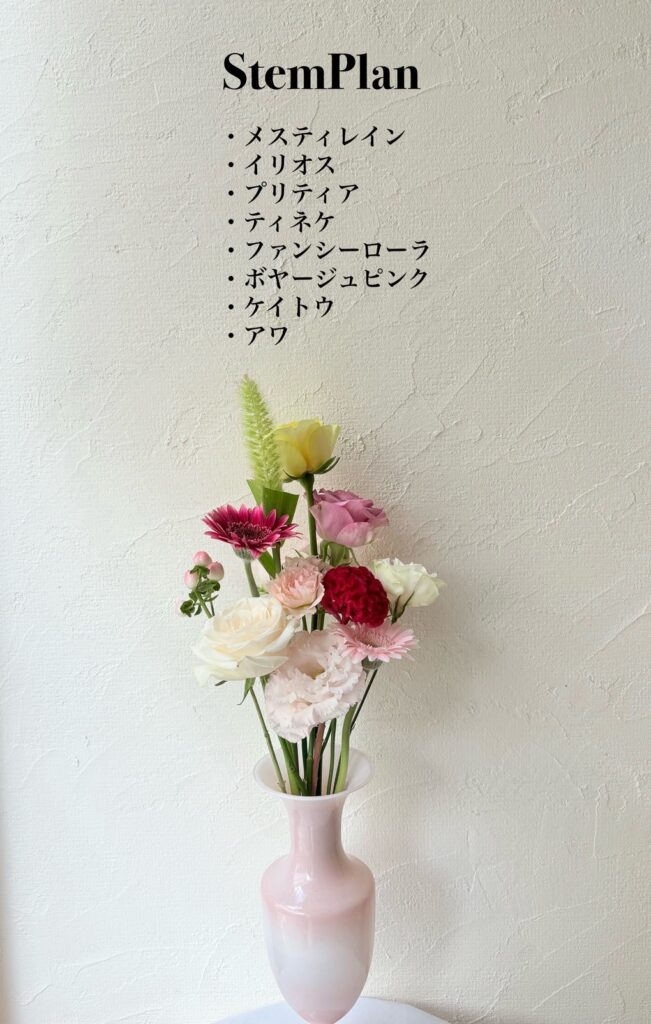 StemPlan
・メスティレイン
・イリオス
・プリティア
・ティネケ
・ファンシーローラ
・ボヤージュピンク
・ケイトウ
・アワ